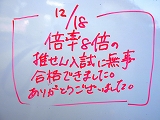 12/18
倍率8倍の
推せん入試に無事
合格できました。
ありがとうございました。